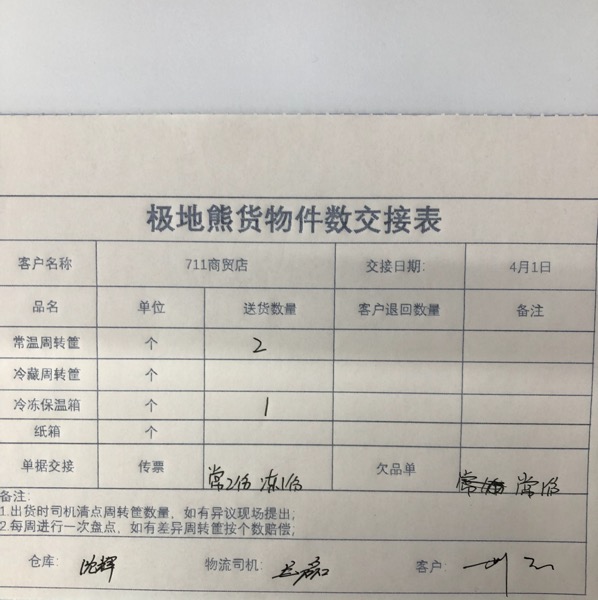 极地熊货物件数交接表
客户名称 711商贸店 交接日期: 4月1日
品名 单位 送货数量 客户退回数量 备注
常温周转筐 个 2
冷藏周转筐 个
冷冻保温箱 个 1
纸箱 个
单据交接 传票 常2份 冻1份 欠品单 常1份
备注:
1.出货时司机清点周转筐数量、如有异议现场提出;
2.每周进行一次盘点、如有差异周转筐按个数赔偿;
仓库: 沈辉 物流司机: 客户: